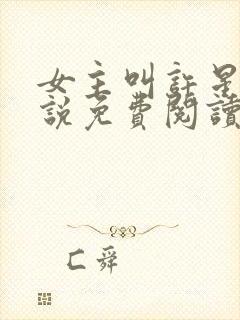 女主叫許星
說免費閱讀
C舜